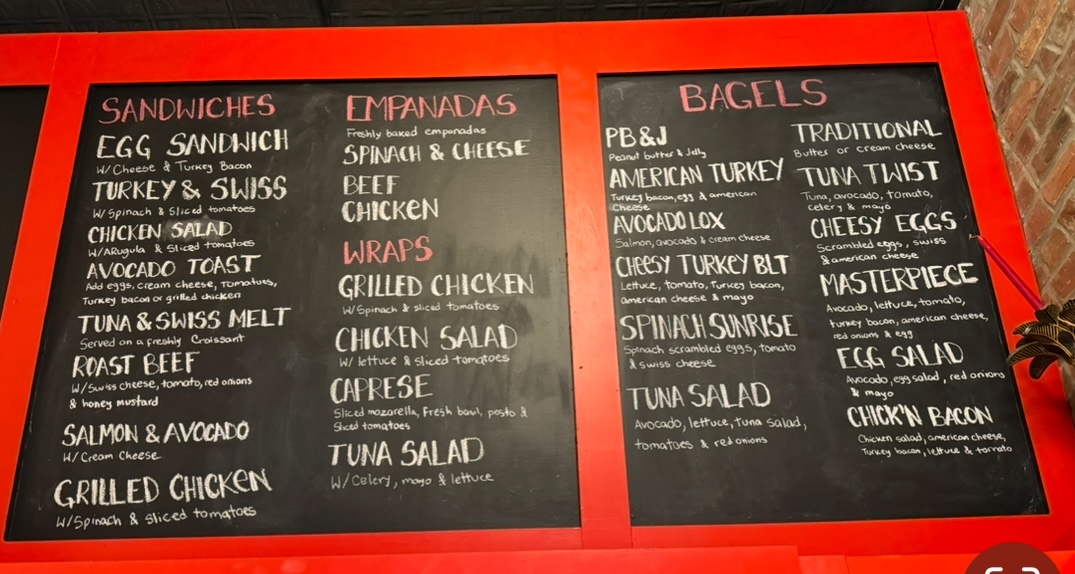 SANDWICHES
EGG SANDWICH
W/Cheese & Turkey Bacon
TURKEY & SWISS
W/Spinach & Sliced tomatoes
CHICKEN SALAD
W/ARugula & Sliced tomatoes
AVOCADO TOAST
Add eggs, cream cheese, Tomatoes,
Turkey bacon or grilled chicken
TUNA & SWISS MELT
Served on a freshly Croissant
ROAST BEEF
W/Swiss cheese, tomato, red onions
& honey mustard
SALMON & AVOCADO
W/Cream Cheese
GRILLED CHICKEN
W/Spinach & Sliced tomatoes
EMPANADAS
Freshly baked empanadas
SPINACH & CHEESE
BEEF
CHICKEN
WRAPS
GRILLED CHICKEN
W/Spinach & sliced tomatoes
CHICKEN SALAD
W/ lettuce & sliced tomatoes
CAPRESE
Sliced mozarella, Fresh basil, pesto &
Sliced tomatoes
TUNA SALAD
W/Celery, mayo & lettuce
BAGELS
PB & J
Peanut butter & Jelly
AMERICAN TURKEY
Turkey bacon, egg & american
Cheese
AVOCADO LOX
Salmon, avocado & cream cheese
CHEESY TURKEY BLT
Lettuce, tomato, Turkey bacon,
american cheese & mayo
SPINACH SUNRISE
Spinach scrambled eggs, tomato
& swiss cheese
TUNA SALAD
Avocado, lettuce, Tuna salad,
tomatoes & red onions
TRADITIONAL
Butter or cream cheese
TUNA TWIST
Tuna, avocado, tomato,
celery & mayo
CHEESY EGGS
Scrambled eggs, swiss
& american cheese
MASTERPIECE
Avocado, lettuce, tomato,
turkey bacon, american cheese,
red onions & egg
EGG SALAD
Avocado, egg salad, red onions
& mayo
CHICK'N BACON
Chicken salad, american cheese,
Turkey bacon, lettuce & tomato